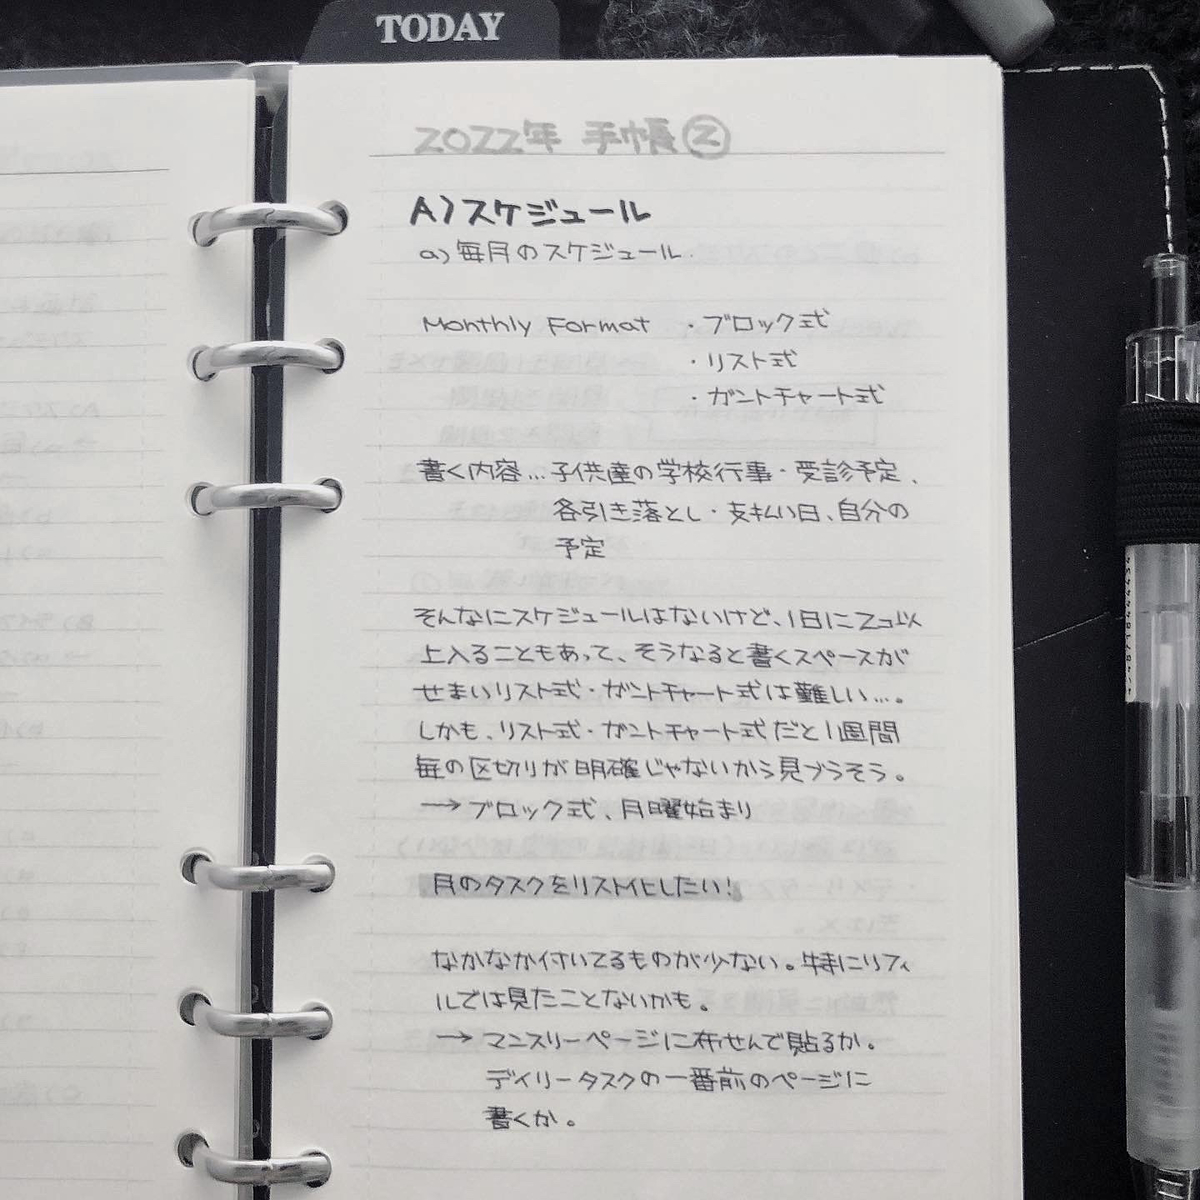 TODAY
2022年 手帳②
A)スケジュール
a)毎月のスケジュール.
Monthly Format ・ブロック式
・リスト式
・ガントチャート式
書く内容…子供達の学校行事・受診予定、
各引き落とし・支払い日、自分の
予定
そんなにスケジュールはないけど、1日に2コ以
上入ることもあって、そうなると書くスペースが
せまいリスト式・ガントチャート式は難しい…。
しかも、リスト式・ガントチャート式だと1週間
毎の区切りが明確じゃないから見づらそう。
→ブロック式、月曜始まり
月のタスクをリスト化したい!
なかなか付いてるものが少ない。特にリフィ
ルでは見たことないかも。
→マンスリーページに布せんで貼るか。
デイリータスクの一番前のページに
書くか。